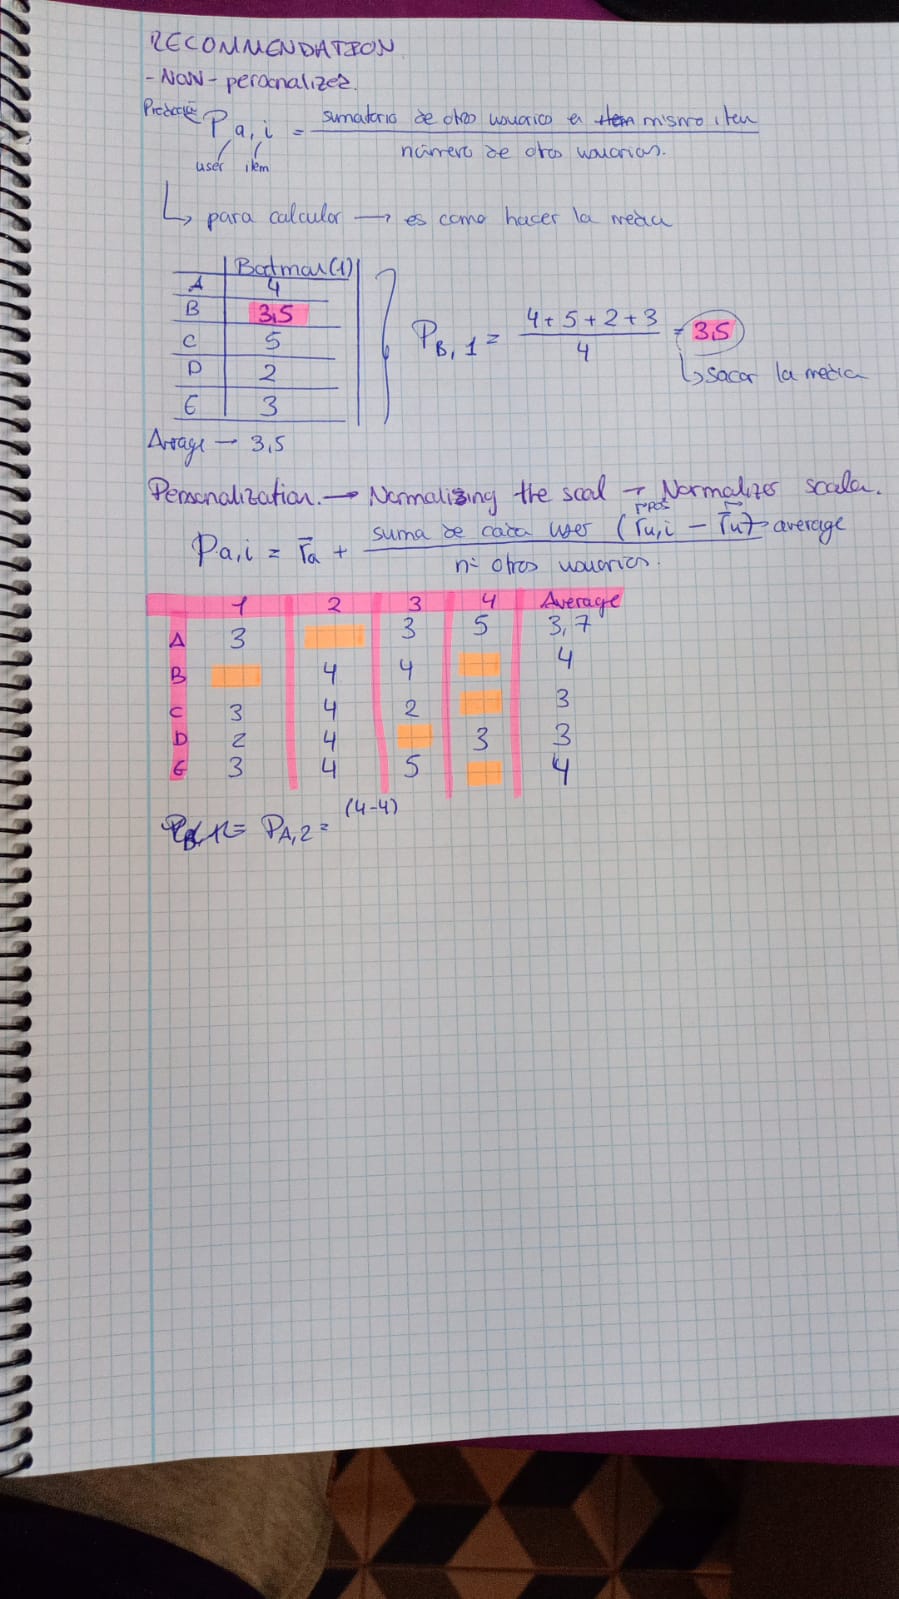 RECOMMENDATION
- NON - peroonalizez.
Pa,i = sumatorio de otros usuarios en item mismo item
número de otros usuarios.
user item
↳ para calcular → es como hacer la media
Batman (1)
A 4
B 3,5
C 5
D 2
E 3
PB,1 = 4+5+2+3 / 4 = 3,5
↳ sacar la media
→ 3,5
Personalization. → Normalizing the scal → Normalizer scaler.
Pa,i = r̄a + suma de cada user (ru,i - r̄u) → average
nº otros usuarios.
1 2 3 4 Average
A 3 3 5 3,7
B 4 4 4
C 3 4 2 3
D 2 4 3 3
E 3 4 5 4
(4-4)
PA,2 =